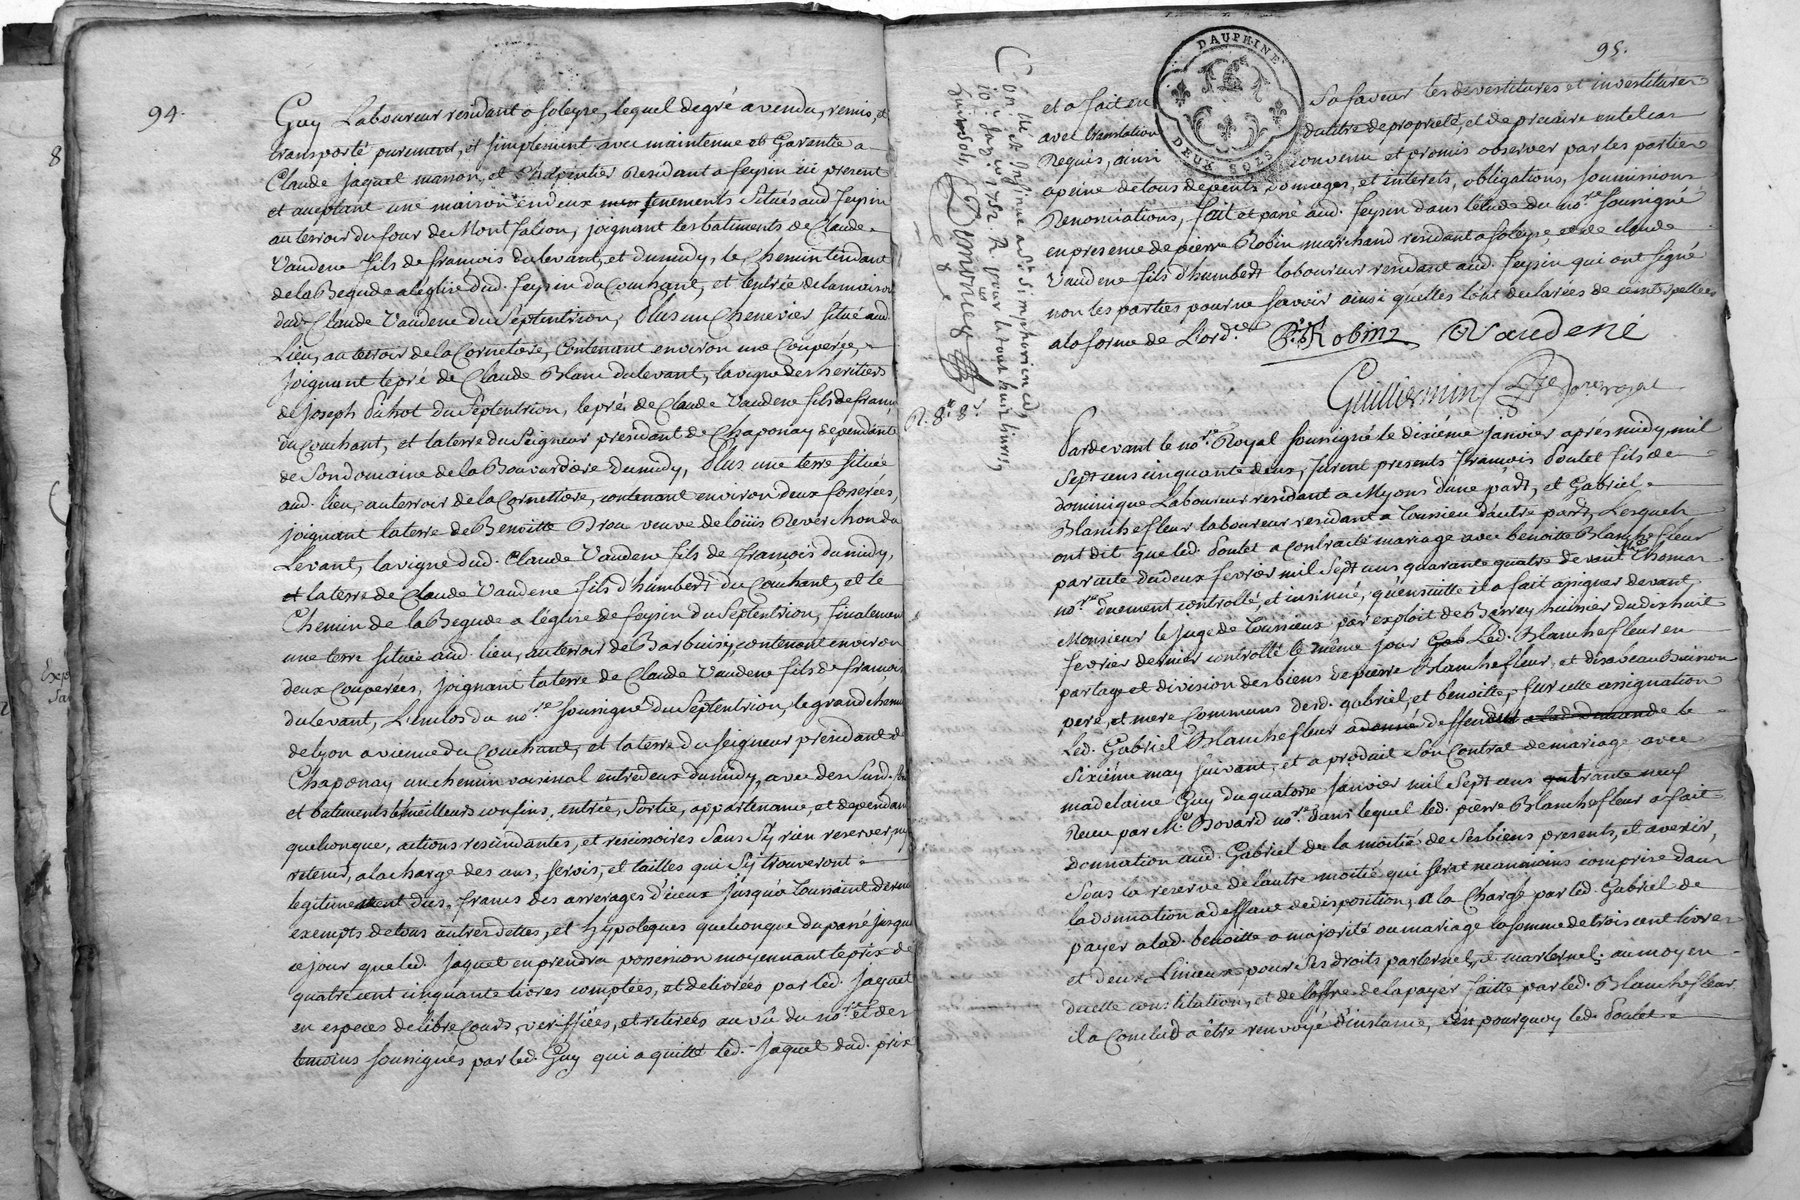 94.
Guy Laboureur residant a soleyze, lequel degré a vendu, remis, et
transporté purement, et simplement avec maintenue et Garentie a
Claude Jaquet masson, et Charpentier Residant a feysin ici present
et acceptant une maison en deux tenements situés aud. feysin
au terroir du four de Montfalion, joignant les batiments de Claude
Vaudene fils de francois du levant, et du midy, le Chemin tendant
de la Begude a leglise dud. feysin du Couchant, et lentrée de la maison
dud. Claude Vaudene du Septentrion, Plus un Chenevier situé aud.
Lieu, au terroir de la Cornetiere, Contenant environ une Couperée,
joignant le pré de Claude Blanc du levant, la vigne des héritiers
de joseph du Septentrion, le pré de Claude Vaudene fils de francois
du Couchant, et la terre du seigneur president de Chaponay dependante
de Son domaine de la Bouvardiere du midy, Plus une terre située
aud. lieu, au terroir de la Cornettiere, contenant environ deux fosserées,
joignant la terre de Benoitte Brou veuve de loüis Reverchon du
Levant, la vigne dud. Claude Vaudene fils de françois du midy,
et la terre de Claude Vaudene fils d'humbert du Couchant, et le
Chemin de la Begude a l'église de feysin du Septentrion, finalement
une terre située aud. lieu, au terroir de Barbuisy, contenant environ
deux couperées, joignant la terre de Claude Vaudene fils de francois
du levant, L'enclos du no.re soussigné du Septentrion, le grand chemin
de lyon a vienne du Couchant, et la terre du seigneur president de
Chaponay un chemin voisinal entredeux du midy, avec desd. fond
et batiments les meilleurs confins, entrée, Sortie, appartenance, et dependance
quelconque, actions rescindantes, et rescissoires Sans S'y rien reserver, ny
retenir, a la charge des cens, servis, et tailles qui S'y trouveront
legitimement dües, francs des arrerages d'iceux jusqu'a Toussaint derniere
exempts de tous autres dettes, et hypoteques quelconque du passé jusqu'a
ce jour que led. Jaquet en prendra possession moyennant le prix de
quatre cent cinquante livres comptées, et delivrées par led. Jaquet
en especes de libre Cours, veriffiées, et retirées au vû du no.re et des
temoins soussignés par led. Guy qui a quitté led. Jaquet dud. prix
95.
DAUPHINE
DEUX SOLS
et a fait en sa faveur les devestitures et investitures
avec translation du titre de proprieté, et de precaire en tel cas
Requis, ainsi convenu et promis observer par les parties
a peine de tous depents domages, et interets, obligations, soumissions
Renonciations, fait et passé aud. feysin dans l'etude du no.re soussigné
en presence de pierre Robin marchand residant a soleyze, et de claude
Vaudene fils d'humbert laboureur residant aud. feysin qui ont signé
non les parties pour ne sçavoir ainsi qu'elles l'ont declarées de ce interpellées
a la forme de L'ord.ce P. Robin Vaudené
Guilliermin no.re royal
Con.lé et Insinué a St. Simphorien d'
10.e janvier 1752. R. pour le tout huit livres
huit sols
Domme
R. 8.# 8.s
Pardevant le no.re Royal soussigné le dixième janvier après midy mil
Sept cens cinquante deux, furent presents François Poulet fils de
dominique Laboureur residant a Myons d'une part, et Gabriel
Blanchefleur laboureur residant a Toussieu d'autre part, Lesquels
ont dit que led. Poulet a contracté mariage avec benoite Blanchefleur
par acte du deux fevrier mil Sept cens quarante quatre devant Me Thomas
no.re duement controllé, et insinué, qu'ensuitte il a fait assigner devant
Monsieur le juge de Toussieux par exploit de Barrey huissier du dixhuit
fevrier dernier controllé le même jour Led. Blanchefleur en
partage et division des biens de pierre Blanchefleur, et d'isabeau Buisson
pere, et mere communs desd. gabriel, et benoitte, Sur cette assignation
Led. Gabriel Blanchefleur a donné deffenses a lad. demande le
Sixième may suivant, et a produit son contrat de mariage avec
madelaine Guy du quatorze janvier mil Sept cens trante neuf
Receu par Me. Bovard no.re dans lequel led. pierre Blanchefleur a fait
donnation aud. Gabriel de la moitié de Ses biens presents, et avenir,
Sous la reserve de l'autre moitié qui serat neanmoins comprise dans
la donnation a deffaut de disposition, a la Charge par led. Gabriel de
payer a lad. benoitte a majorité ou mariage la somme de trois cent livres
et deux Linceux pour Ses droits paternel, et maternel. au moyen
de cette constitution, et de l'offre de la payer faitte par led. Blanchefleur
il a Conclud a être renvoyé d'instance, c'est pourquoy led. Poulet